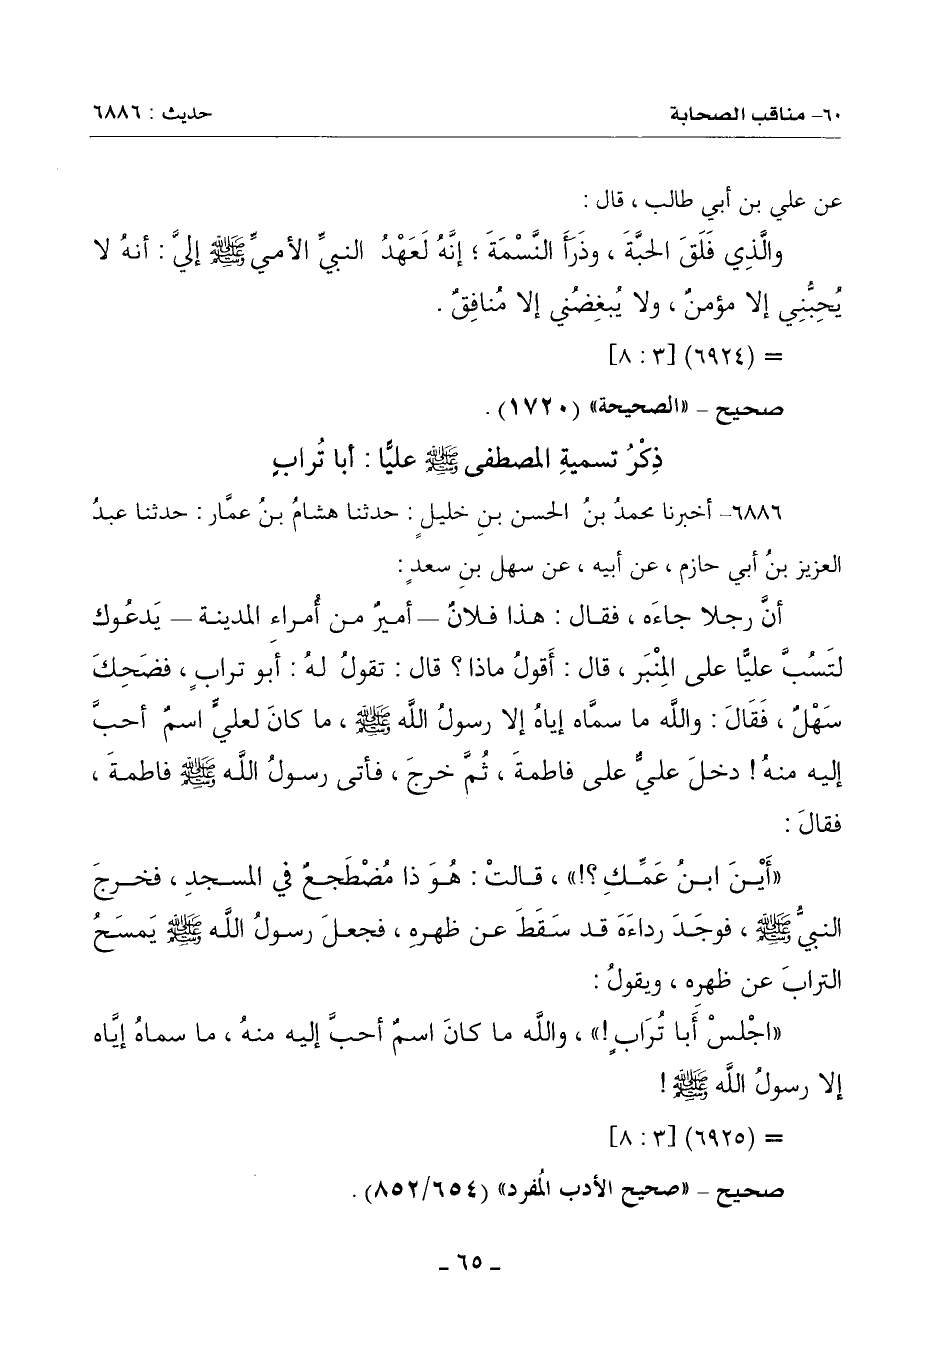 ٦٠- مناقب الصحابة حديث : ٦٨٨٦
عن علي بن أبي طالب ، قال :
والَّذِي فَلَقَ الحَبَّةَ ، وذَرَأَ النَّسْمَةَ ؛ إنَّهُ لَعَهْدُ النبيِّ الأميِّ ﷺ إليَّ : أنهُ لا
يُحِبُّنِي إلا مؤمنٌ ، ولا يُبغِضُني إلا مُنافِقٌ .
= (٦٩٢٤) [٣ : ٨]
صحيح - «الصحيحة» (١٧٢٠) .
ذِكْرُ تسميةِ المصطفى ﷺ عليًّا : أبا تُرابٍ
٦٨٨٦- أخبرنا محمدُ بنُ الحسنِ بنِ خليلٍ : حدثنا هشامُ بنُ عمَّار : حدثنا عبدُ
العزيز بنُ أبي حازم ، عن أبيه ، عن سهل بن سعدٍ :
أنَّ رجلا جاءَه ، فقال : هذا فلانٌ – أميرٌ من أُمراءِ المدينة – يَدعُوك
لتَسُبَّ عليًّا على المِنْبَر ، قال : أقولُ ماذا ؟ قال : تقولُ لهُ : أبو ترابٍ ، فضَحِكَ
سَهْلٌ ، فَقَالَ : والله ما سمَّاه إياهُ إلا رسولُ الله ﷺ ، ما كانَ لعليٍّ اسمٌ أحبَّ
إليه منهُ ! دخلَ عليٌّ على فاطمةَ ، ثُمَّ خرجَ ، فأتى رسولُ اللَّه ﷺ فاطمةَ ،
فقالَ :
«أَيْنَ ابنُ عَمِّكِ ؟!» ، قالتْ : هُوَ ذا مُضْطَجعٌ في المسجدِ ، فخرجَ
النبيُّ ﷺ ، فوجَدَ رداءَهَ قد سَقَطَ عن ظهرِهِ ، فجعلَ رسولُ اللَّه ﷺ يَمسَحُ
الترابَ عن ظهرِه ، ويقولُ :
«اجْلسْ أَبا تُرَابٍ !» ، والله ما كانَ اسمٌ أحبَّ إليه منهُ ، ما سماهُ إيَّاه
إلا رسولُ اللَّه ﷺ !
= (٦٩٢٥) [٣ : ٨]
صحيح - «صحيح الأدب المُفرد» (٨٥٢/٦٥٤) .
_ ٦٥ _